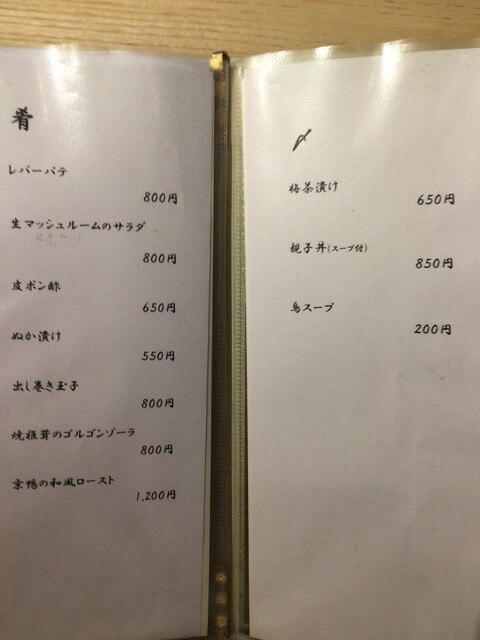 肴
レバーパテ
800円
生マッシュルームのサラダ
800円
皮ポン酢
650円
ぬか漬け
550円
出し巻き玉子
800円
焼椎茸のゴルゴンゾーラ
800円
京鴨の和風ロースト
1,200円
〆
梅茶漬け
650円
親子丼(スープ付)
850円
鳥スープ
200円